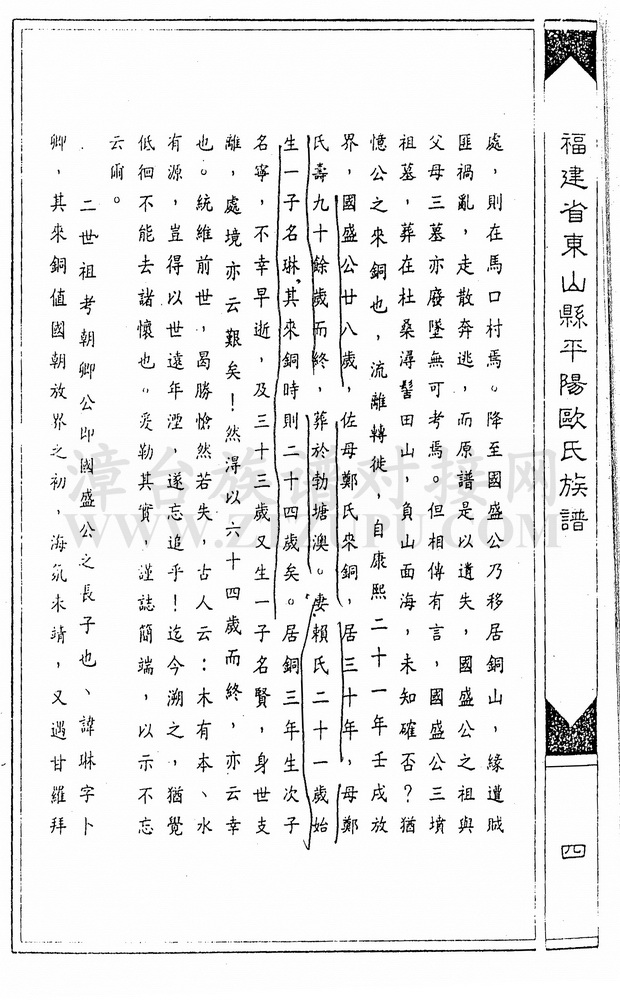 福建省東山縣平陽歐氏族譜
四
處，則在馬口村焉。降至國盛公乃移居銅山，緣遭賊
匪禍亂，走散奔逃，而原譜是以遺失，國盛公之祖與
父母三墓亦廢墜無可考焉。但相傳有言，國盛公三墳
祖墓，葬在杜桑潯髻田山，負山面海，未知確否？猶
憶公之來銅也，流離轉徙，自康熙二十一年壬戌放
界，國盛公廿八歲，佐母鄭氏來銅，居三十年，母鄭
氏壽九十餘歲而終，葬於勃塘澳。妻賴氏二十一歲始
生一子名琳，其來銅時則二十四歲矣。居銅三年生次子
名寧，不幸早逝，及三十三歲又生一子名賢，身世支
離，處境亦云艱矣！然得以六十四歲而終，亦云幸
也。統維前世，曷勝愴然若失，古人云：木有本、水
有源，豈得以世遠年湮，遂忘追乎！迄今溯之，猶覺
低徊不能去諸懷也。爰勒其實，謹誌簡端，以示不忘
云爾。
二世祖考朝卿公即國盛公之長子也、諱琳字卜
卿，其來銅值國朝放界之初，海氛未靖，又遇甘羅拜
漳台族谱对接网
WWW.ZTZUPU.COM